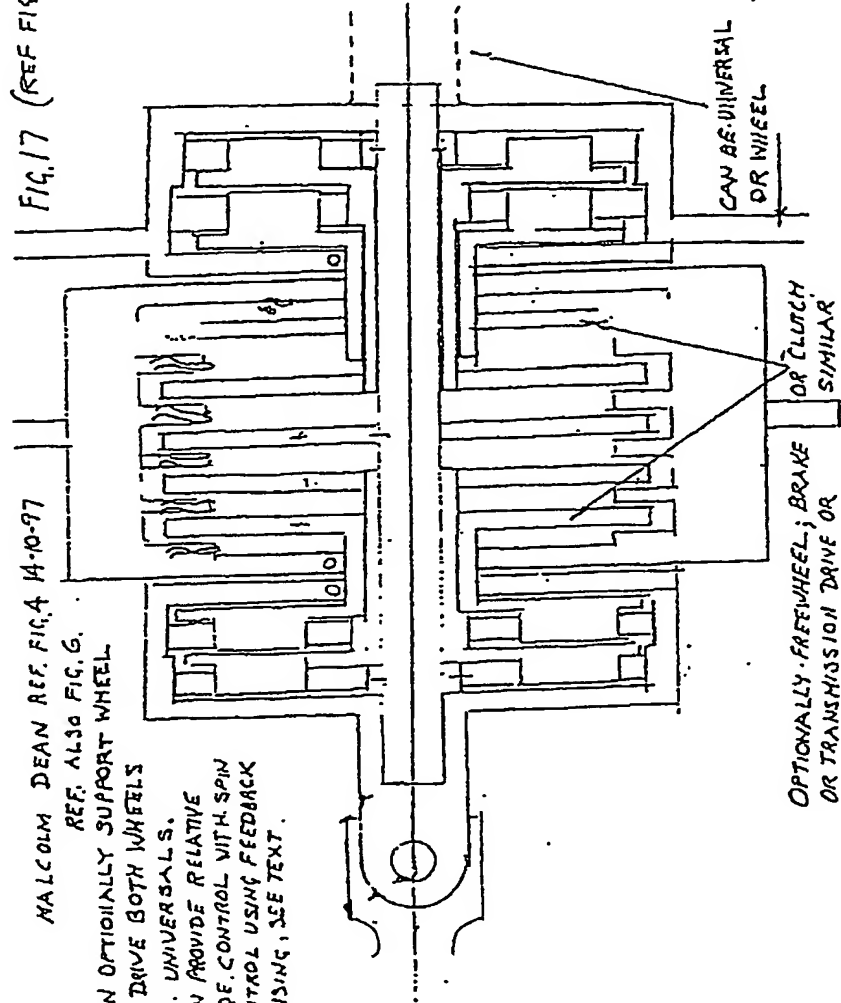 FIG.17 (REF FIG
MALCOLM DEAN REF. FIG.4 14-10-97
REF. ALSO FIG.6.
N OPTIONALLY SUPPORT WHEEL
DRIVE BOTH WHEELS
. UNIVERSALS.
N PROVIDE RELATIVE
DE. CONTROL WITH SPIN
TROL USING FEEDBACK
ISING, SEE TEXT.
CAN BE UNIVERSAL
OR WHEEL
OPTIONALLY FREEWHEEL; BRAKE OR CLUTCH
OR TRANSMISSION DRIVE OR SIMILAR